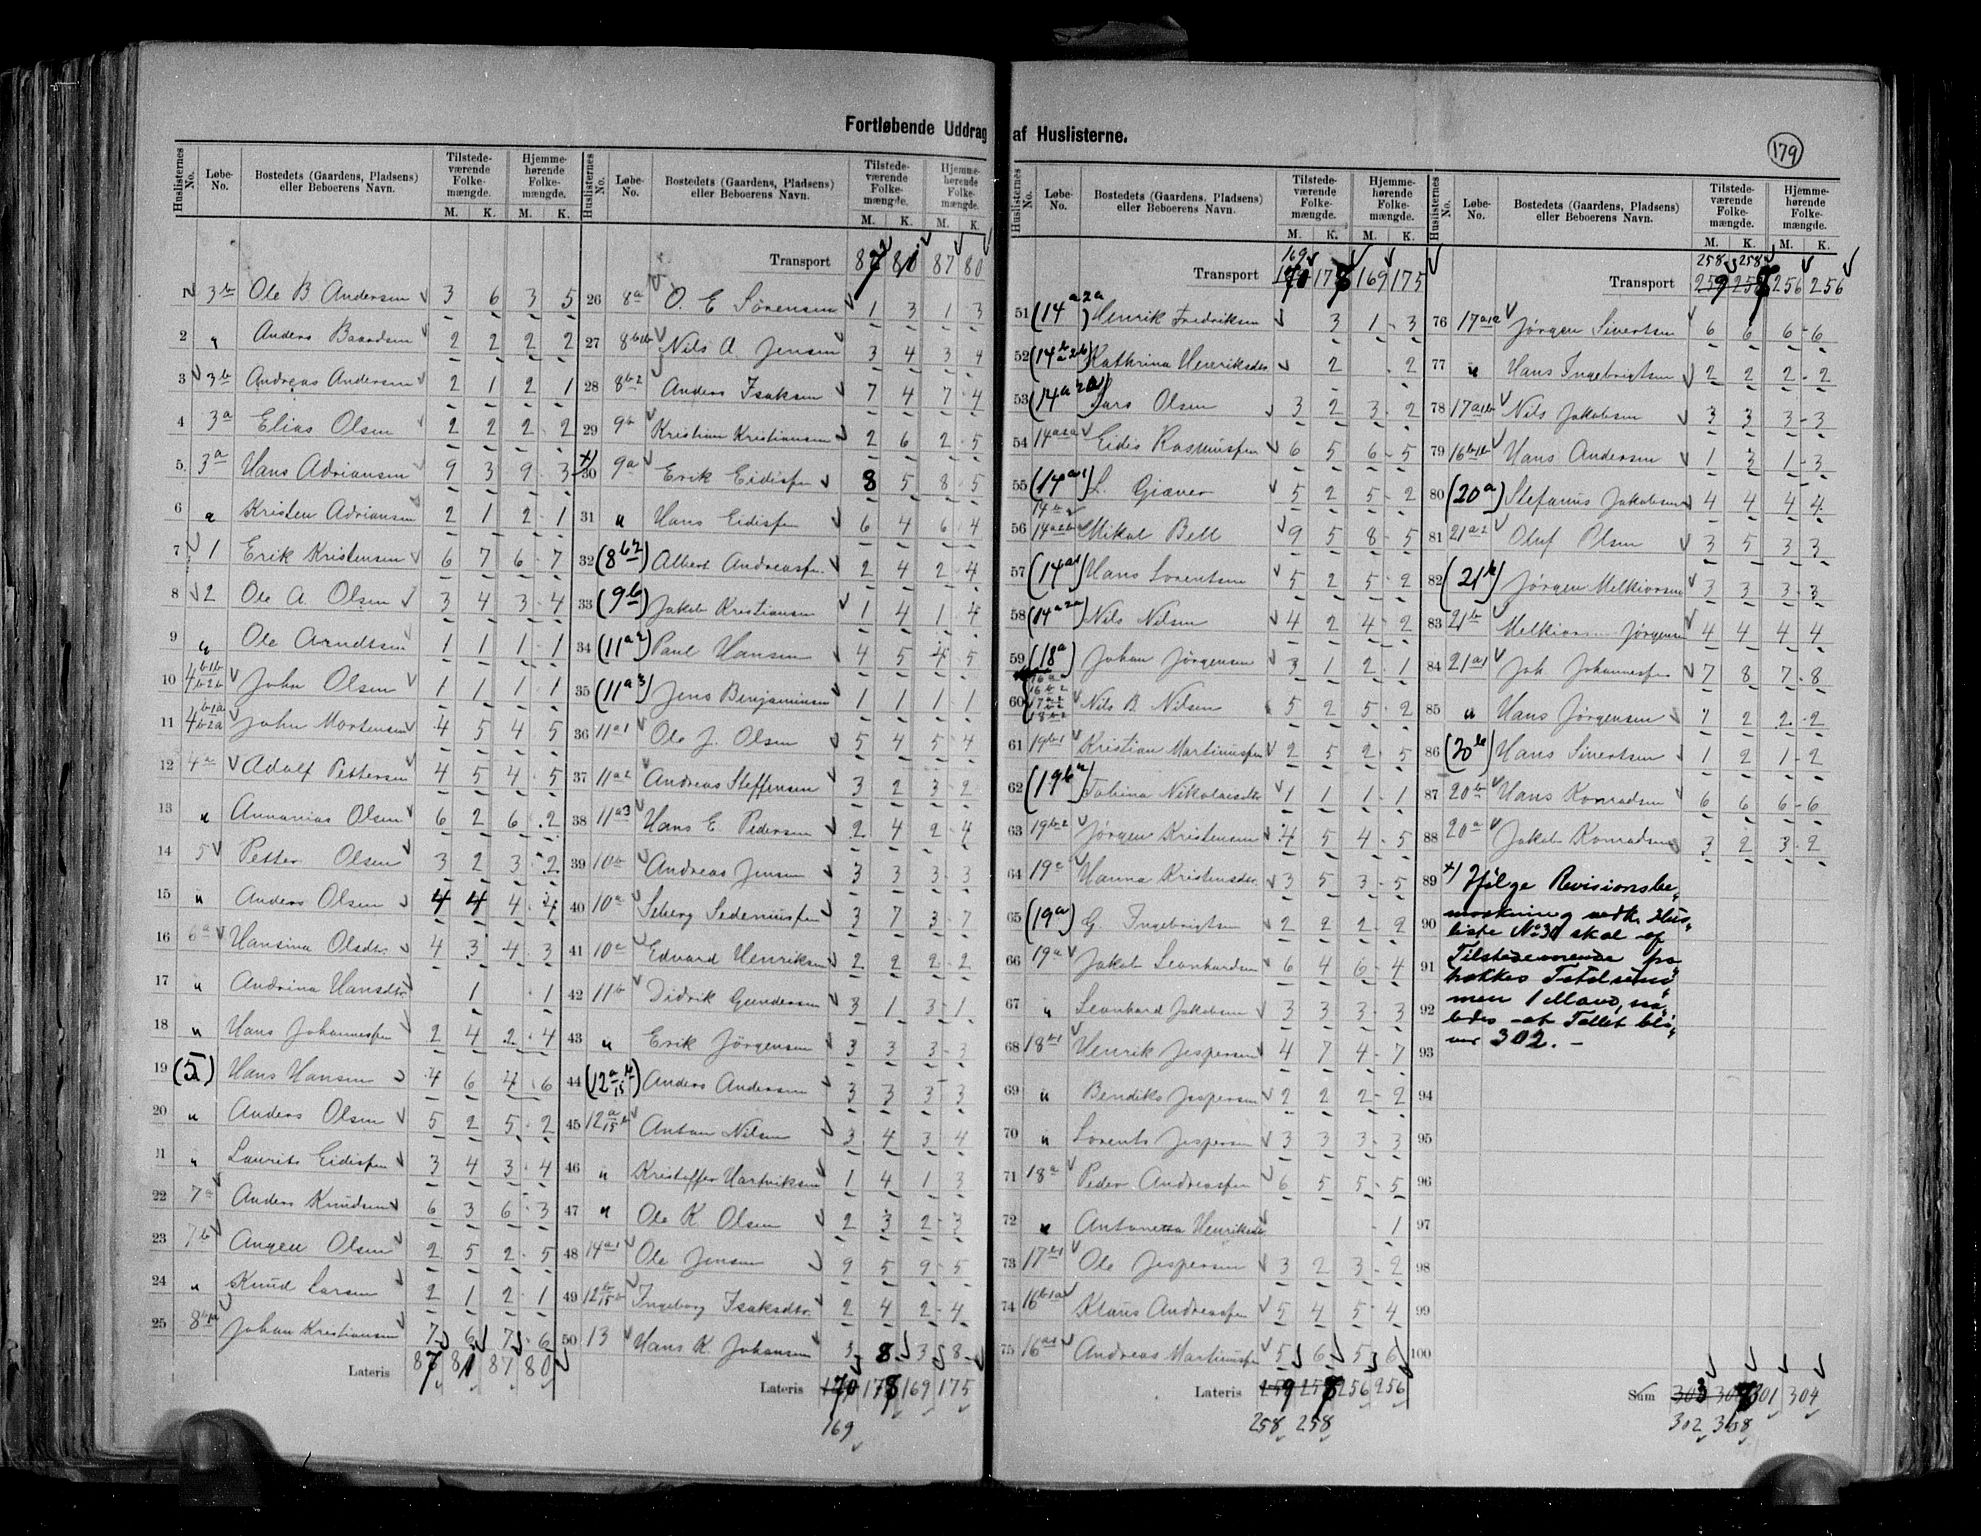 Fortløbende Uddrag af Huslisterne.
179
Huslisternes No. Løbe-No. Bostedets (Gaardens, Pladsens) eller Beboerens Navn. Tilstedeværende Folkemængde. Hjemmehørende Folkemængde.
M. K. M. K.
1 3b Ole B Andersen 3 6 3 5
2 " Anders Baardsen 2 2 2 2
3 3b Andreas Andersen 2 1 2 1
4 3a Elias Olsen 2 2 2 2
5 3a Hans Adriansen 9 3 9 3
6 " Kristen Adriansen 2 1 2 1
7 1 Erik Kristensen 6 7 6 7
8 2 Ole A. Olsen 3 4 3 4
9 " Ole Arndtsen 1 1 1 1
10 4b1b b2b John Olsen 1 1 1 1
11 4b1a b2a John Mortensen 4 5 4 5
12 4a Adolf Pettersen 4 5 4 5
13 " Annanias Olsen 6 2 6 2
14 5 Petter Olsen 3 2 3 2
15 " Anders Olsen 4 4 4 4
16 6a Hansina Olsdtr. 4 3 4 3
17 " Andrina Hansdtr 1 1
18 " Hans Johannessen 2 4 2 4
19 (5) Hans Hansen 4 6 4 6
20 " Anders Olsen 5 2 5 2
21 " Laurits Eidissen 3 4 3 4
22 7a Anders Knudsen 6 3 6 3
23 7b Angell Olsen 2 5 2 5
24 " Knud Larsen 2 1 2 1
25 8b1a Johan Kristiansen 7 6 7 6
Lateris 87 81 87 80
Huslisternes No. Løbe-No. Bostedets (Gaardens, Pladsens) eller Beboerens Navn. Tilstedeværende Folkemængde. Hjemmehørende Folkemængde.
M. K. M. K.
Transport 87 81 87 80
26 8a O. E Sørensen 1 3 1 3
27 8b1b Nils A Jensen 3 4 3 4
28 8b2 Anders Isaksen 7 4 7 4
29 9b Kristian Kristiansen 2 6 2 5
x) 30 9a Erik Eidissen 8 5 8 5
31 " Hans Eidissen 6 4 6 4
32 (8b2) Albert Andreassen 2 4 2 4
33 (9b) Jakob Kristiansen 1 4 1 4
34 (11a2) Paul Hansen 4 5 4 5
35 (11a3) Jens Benjaminsen 1 1 1 1
36 11a1 Ole J. Olsen 5 4 5 4
37 11a2 Andreas Steffensen 3 2 3 2
38 11a3 Hans E Pedersen 2 4 2 4
39 10b Andreas Jensen 3 3 3 3
40 10a Seberg Sedeniussen 3 7 3 7
41 10a Edvard Henriksen 2 2 2 2
42 11b Didrik Gundersen 3 1 3 1
43 " Erik Jørgensen 3 3 3 3
44 (12a 15) Anders Andersen 3 3 3 3
45 12a 15 Anton Nilsen 3 4 3 4
46 " Kristoffer Hartviksen 1 4 1 3
47 " Ole K. Olsen 2 3 2 3
48 14a1 Ole Jensen 9 5 9 5
49 12b 15b Ingeborg Isaksdtr. 2 4 2 4
50 13 Hans K. Johansen 3 8 3 8
Lateris 170 178 169 175
169
Huslisternes No. Løbe-No. Bostedets (Gaardens, Pladsens) eller Beboerens Navn. Tilstedeværende Folkemængde. Hjemmehørende Folkemængde.
M. K. M. K.
169
Transport 170 178 169 175
51 (14a2a) Henrik Fredriksen 3 1 3
52 (14b a2b) Kathrina Henriksdtr 2 2
53 (14a2a) Lars Olsen 3 2 3 2
54 14a2a Eidis Rasmussen 6 5 6 5
55 (14a1) L. Giæver 5 2 5 2
56 14b2 14a2b Mikal Bell 9 5 8 5
57 (14a1) Hans Lorentsen 5 2 5 2
58 (14a2a) Nils Nilsen 4 2 4 2
59 (18a) Johan Jørgensen 3 1 2 1
60 16a 16b2 17a2 18b2 Nils B. Nilsen 5 2 5 2
61 19b1 Kristian Martinussen 2 5 2 5
62 (19b2) Tobina Nikolaisdtr 1 1 1 1
63 19b2 Jørgen Kristensen 4 5 4 5
64 19a Hanna Kristensdtr. 3 5 3 5
65 (19a) G Ingebrigtsen 2 2 2 2
66 19a Jakob Leonhardsen 6 4 6 4
67 " Leonhard Jakobsen 3 3 3 3
68 18b1 Henrik Jespersen 4 7 4 7
69 " Bendiks Jespersen 2 2 2 2
70 " Lorents Jespersen 3 3 3 3
71 18a Peder Andreassen 6 5 5 5
72 " Antonetta Henriksdtr 1
73 17b1 Ole Jespersen 3 2 3 2
74 16b1a Klaus Andreassen 5 4 5 4
75 16a1 Andreas Martinussen 5 6 5 6
Lateris 259 258 256 256
258 258
Huslisternes No. Løbe-No. Bostedets (Gaardens, Pladsens) eller Beboerens Navn. Tilstedeværende Folkemængde. Hjemmehørende Folkemængde.
M. K. M. K.
258 258
Transport 259 258 256 256
76 17a1a Jørgen Sivertsen 6 6 6 6
77 " Hans Ingebrigtsen 2 2 2 2
78 17a1b Nils Jakobsen 3 3 3 3
79 16b1b Hans Andersen 1 3 1 3
80 (20a) Stefanus Jakobsen 4 4 4 4
81 21a2 Oluf Olsen 3 5 3 3
82 (21b) Jørgen Melkiorsen 3 3 3 3
83 21b Melkiorsen Jørgensen 4 4 4 4
84 21a1 Joh Johannessen 7 8 7 8
85 " Hans Jørgensen 2 2 2 2
86 (20b) Hans Sivertsen 1 2 1 2
87 20b Hans Konradsen 6 6 6 6
88 20a Jakob Konradsen 3 2 3 2
89 x) Ifølge Revisionsbe-
90 mærkning vedk. Hus-
liste No 30 skal af
91 Tilstedeværende fra
trækkes Totalsum-
92 men 1 Mand, saa-
ledes at Tallet bli-
93 ver 302. -
94
95
96
97
98
99
100
Sum 303 308 301 304
302 308